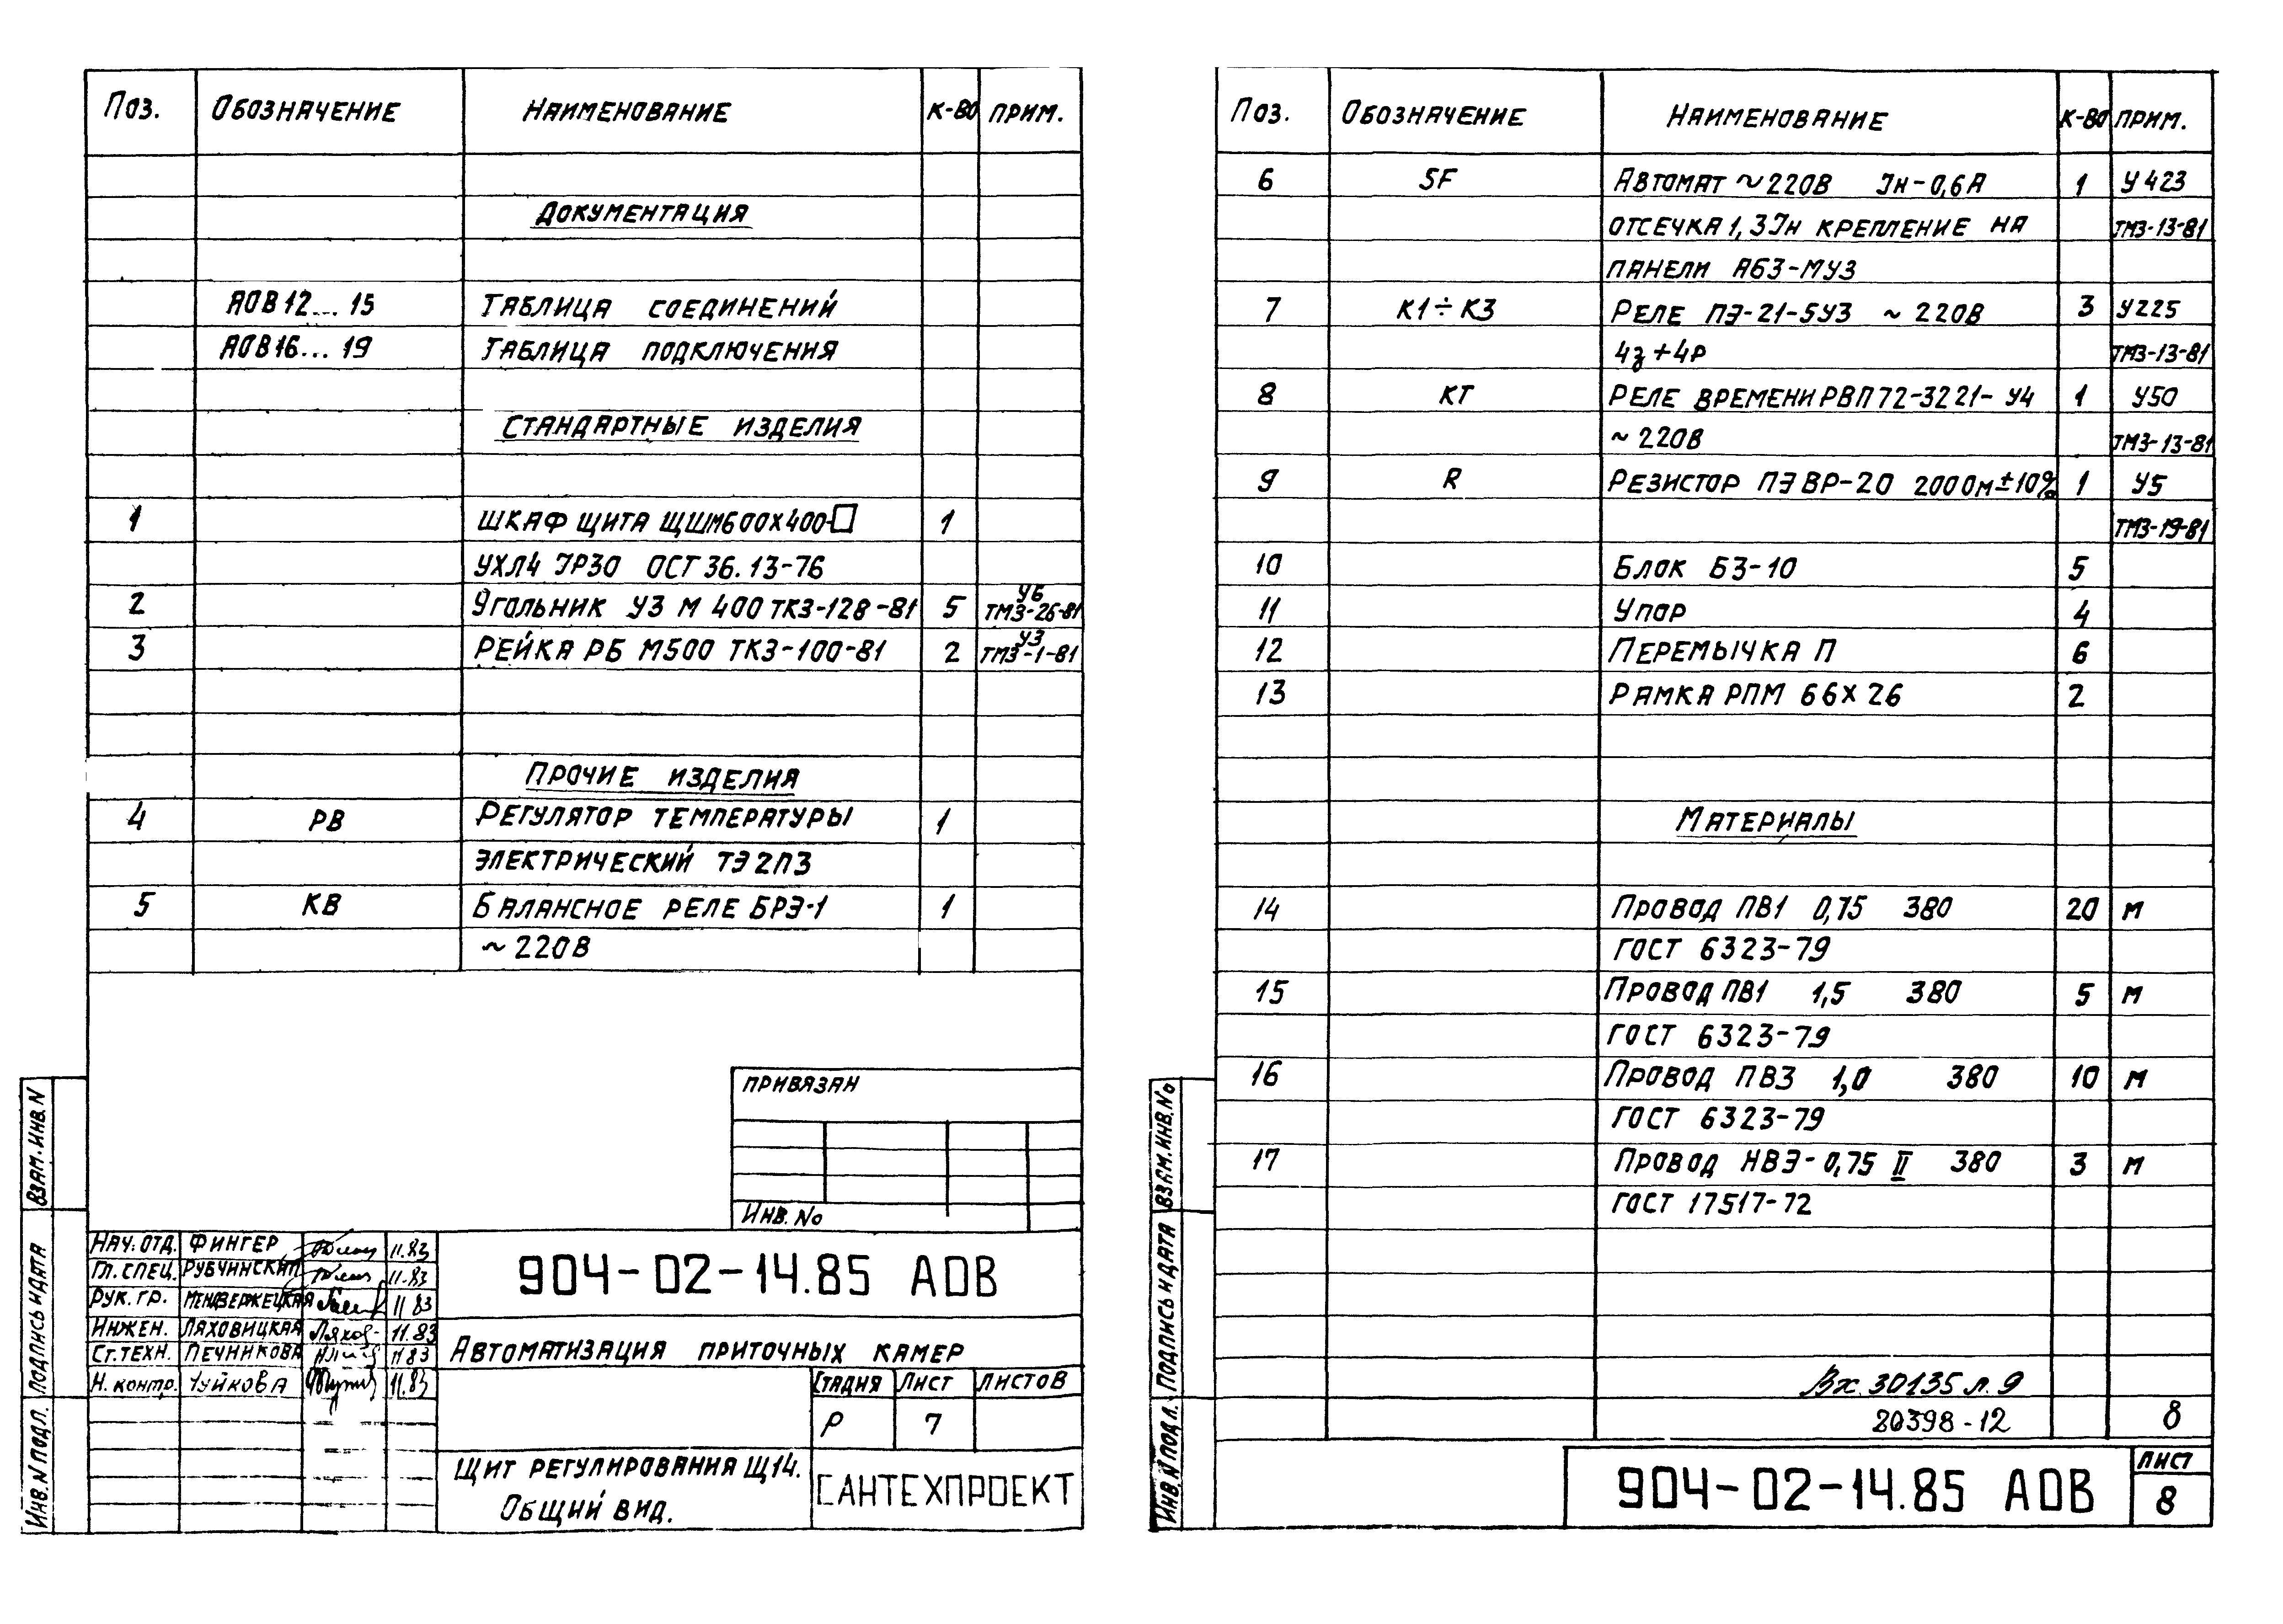 Поз. Обозначение Наименование К-во Прим.
Документация
АОВ12...15 Таблица соединений
АОВ16...19 Таблица подключения
Стандартные изделия
1 Шкаф щита ЩШМ600х400-□ 1
УХЛ4 IP30 ОСТ 36.13-76
2 Угольник УЗ М 400 ТКЗ-128-81 5 У6 ТМЗ-26-81
3 Рейка РБ М500 ТКЗ-100-81 2 У3 ТМЗ-1-81
Прочие изделия
4 РВ Регулятор температуры 1
электрический ТЭ2П3
5 КВ Балансное реле БРЭ-1 1
~ 220В
Привязан
Инв. №
Нач. отд. Фингер 11.83
Гл. спец. Рубчинский 11.83
Рук. гр. Мендзержецкая 11 83
Инжен. Ляховицкая Ляхов- 11.83
Ст. техн. Печникова 11 83
Н. контр. Чуйкова 11.83
904-02-14.85 АОВ
Автоматизация приточных камер
Стадия Лист Листов
Р 7
Щит регулирования Щ14.
Общий вид.
САНТЕХПРОЕКТ
Взам. инв. N
Подпись и дата
Инв. N подл.
Поз. Обозначение Наименование К-во Прим.
6 SF Автомат ~220В Iн-0,6А 1 У423
отсечка 1,3Iн крепление на ТМ3-13-81
панели А63-МУ3
7 К1÷К3 Реле ПЭ-21-5У3 ~ 220В 3 У225
4з+4р ТМ3-13-81
8 КТ Реле времени РВП72-3221-У4 1 У50
~ 220В ТМ3-13-81
9 R Резистор ПЭВР-20 200Ом±10% 1 У5
ТМ3-19-81
10 Блок БЗ-10 5
11 Упор 4
12 Перемычка П 6
13 Рамка РПМ 66х26 2
Материалы
14 Провод ПВ1 0,75 380 20 м
ГОСТ 6323-79
15 Провод ПВ1 1,5 380 5 м
ГОСТ 6323-79
16 Провод ПВ3 1,0 380 10 м
ГОСТ 6323-79
17 Провод НВЭ-0,75 II 380 3 м
ГОСТ 17517-72
Вх. 30135 л. 9
20398-12 8
904-02-14.85 АОВ
Лист
8
Взам. инв. №
Подпись и дата
Инв. N подл.